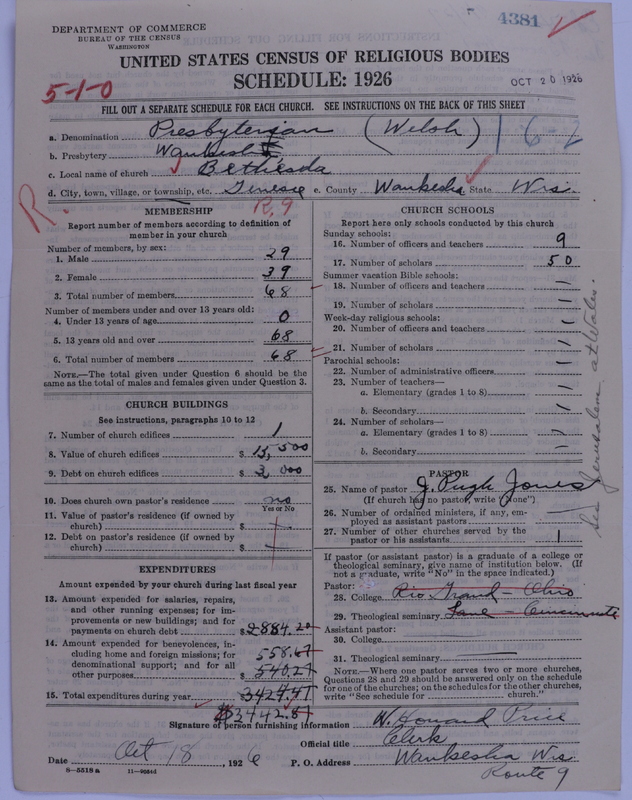 4381
DEPARTMENT OF COMMERCE
BUREAU OF THE CENSUS
WASHINGTON
UNITED STATES CENSUS OF RELIGIOUS BODIES
SCHEDULE: 1926
OCT 20 1926
5-1-0
FILL OUT A SEPARATE SCHEDULE FOR EACH CHURCH. SEE INSTRUCTIONS ON THE BACK OF THIS SHEET
a. Denomination Presbyterian (Welsh) 16-2
b. Presbytery Waukesha
c. Local name of church Bethesda
d. City, town, village, or township, etc. Genesee e. County Waukesha State Wis.
R. R, 9
MEMBERSHIP
Report number of members according to definition of
member in your church
Number of members, by sex:
1. Male 29
2. Female 39
3. Total number of members 68
Number of members under and over 13 years old:
4. Under 13 years of age 0
5. 13 years old and over 68
6. Total number of members 68
NOTE.—The total given under Question 6 should be
same as the total of males and females given under Question 3.
CHURCH BUILDINGS
See instructions, paragraphs 10 to 12
7. Number of church edifices 1
8. Value of church edifices $ 15,500
9. Debt on church edifices $ 3,000
10. Does church own pastor's residence no
Yes or No
11. Value of pastor's residence (if owned by
church) $
12. Debt on pastor's residence (if owned by
church) $
EXPENDITURES
Amount expended by your church during last fiscal year
13. Amount expended for salaries, repairs,
and other running expenses; for im-
provements or new buildings; and for
payments on church debt $ 2884.20
14. Amount expended for benevolences, in-
cluding home and foreign missions; for
denominational support; and for all
other purposes 558.67
$ 540.27
15. Total expenditures during year 3424.47
$3442.87
CHURCH SCHOOLS
Report here only schools conducted by this church
Sunday schools:
16. Number of officers and teachers 9
17. Number of scholars 50
Summer vacation Bible schools:
18. Number of officers and teachers
19. Number of scholars
Week-day religious schools:
20. Number of officers and teachers
21. Number of scholars
Parochial schools:
22. Number of administrative officers
23. Number of teachers—
a. Elementary (grades 1 to 8)
b. Secondary
24. Number of scholars—
a. Elementary (grades 1 to 8)
b. Secondary
See Jerusalem at Wales.
PASTOR
25. Name of pastor J. Pugh Jones
(If church has no pastor, write "None")
26. Number of ordained ministers, if any, em-
ployed as assistant pastors
27. Number of other churches served by the
pastor or his assistants 1
If pastor (or assistant pastor) is a graduate of a college or
theological seminary, give name of institution below. (If
not a graduate, write "No" in the space indicated.)
Pastor:
28. College Rio Grand - Ohio
29. Theological seminary Lane - Cincinnati
Assistant pastor:
30. College
31. Theological seminary
NOTE.—Where one pastor serves two or more churches,
Questions 28 and 29 should be answered only on the schedule
for one of the churches; on the schedules for the other churches,
write "See schedule for church."
Signature of person furnishing information W. Howard Price
Official title Clerk
Date Oct 18, 1926 P. O. Address Waukesha Wis
Route 9
8-5518 a